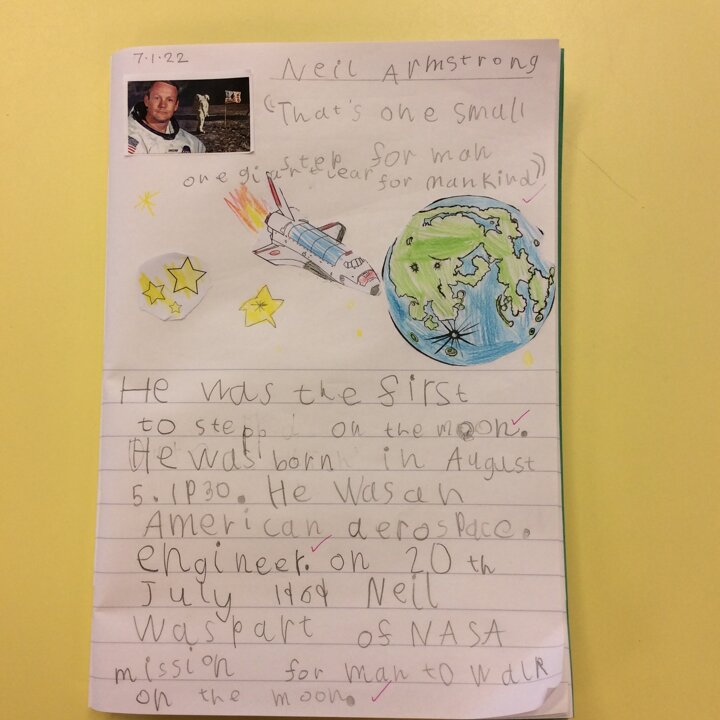 7.1.22
Neil Armstrong
"That's one small
step for man
one giant lear for mankind"
He was the first
to stepp on the moon.
He was born in August
5. 1930. He was an
American aerospace.
engineer. on 20 th
July 1969 Neil
was part of NASA
mission for man to walk
on the moon.